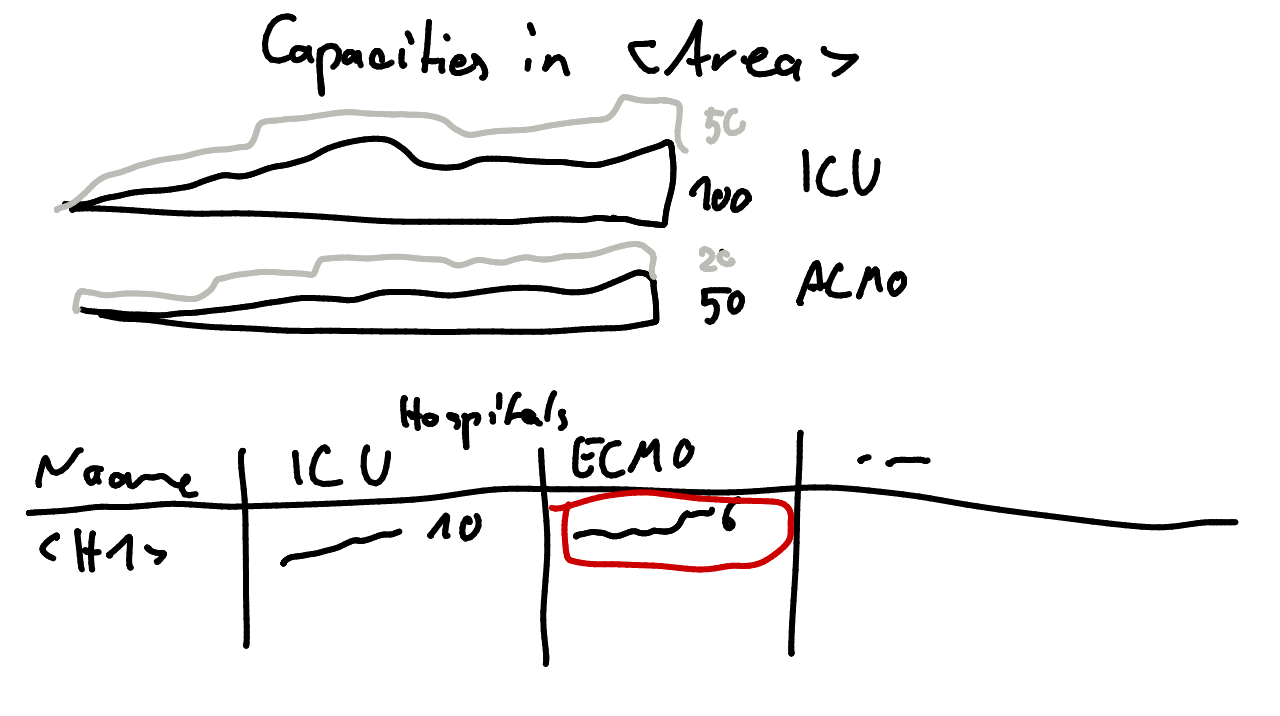 Capacities in <Area>
50
100 ICU
20
50 ACMO
Hospitals
Name ICU ECMO . —
<H1> 10 6